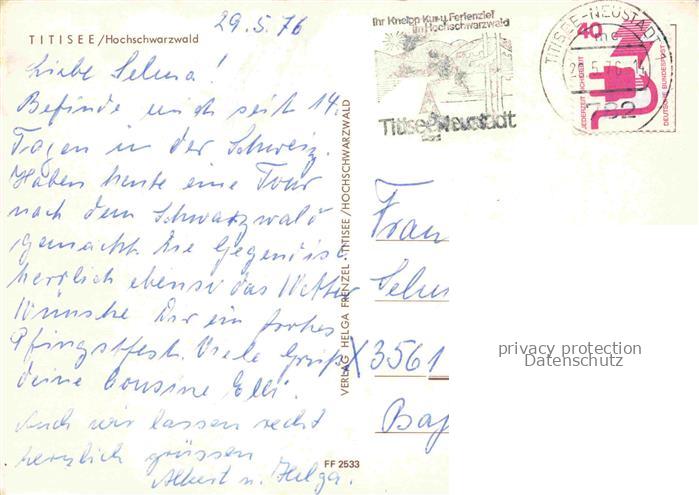 29.5.76
TITISEE/Hochschwarzwald
Liebe Selma!
Befinde mich seit 14.
Tagen in der Schweiz.
Haben heute eine Tour
nach dem Schwarzwald
gemacht. Die Gegend is
herrlich ebenso das Wetter
Wünsche Dir ein frohes
Pfingstfest. Viele Grüß
deine Cousine Elli.
Auch wir lassen recht
herzlich grüssen
Albert u. Helga.
VERLAG HELGA FRENZEL · TITISEE/HOCHSCHWARZWALD
FF 2533
Ihr Kneipp-Kur-u. Ferienziel
im Hochschwarzwald
Titisee-Neustadt
TITISEE-NEUSTADT
40
JEDERZEIT SICHERHEIT
DEUTSCHE BUNDESPOST
Frau
Selm
X 3561
privacy protection
Datenschutz